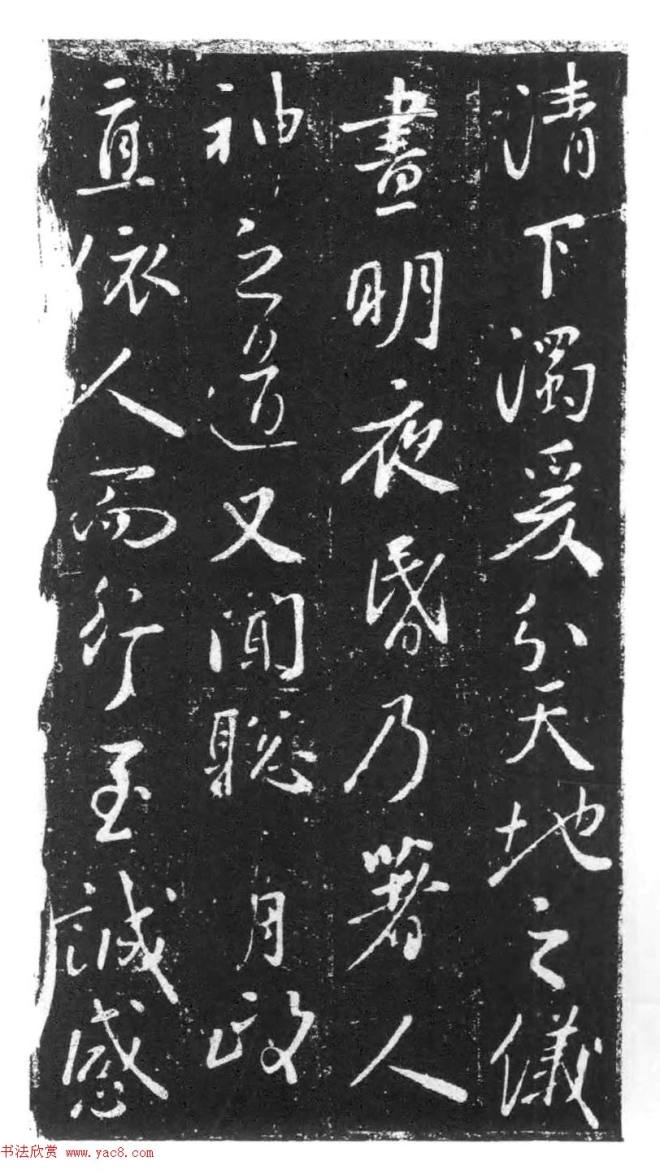 清下濁爰分天地之儀
晝明夜昏乃著人
神之道又聞聡月政
直依人而行至誠感
书法欣赏 www.yac8.com